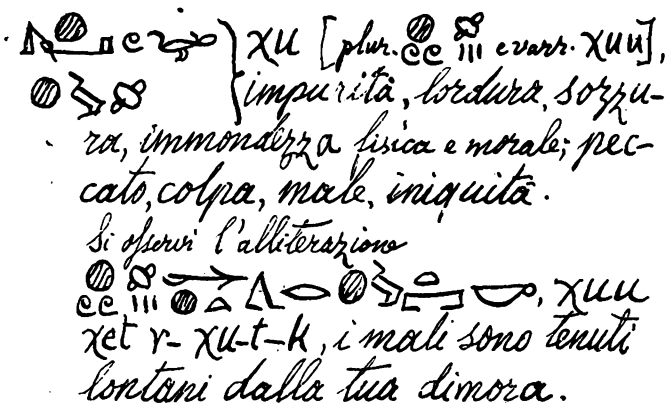 χu [plur. e varr. χuu],
impurità, lordura, sozzu-
ra, immondezza fisica e morale; pec-
cato, colpa, male, iniquità.
Si osservi l'alliterazione
, χuu
χet r-χu-t-k, i mali sono tenuti
lontani dalla tua dimora.